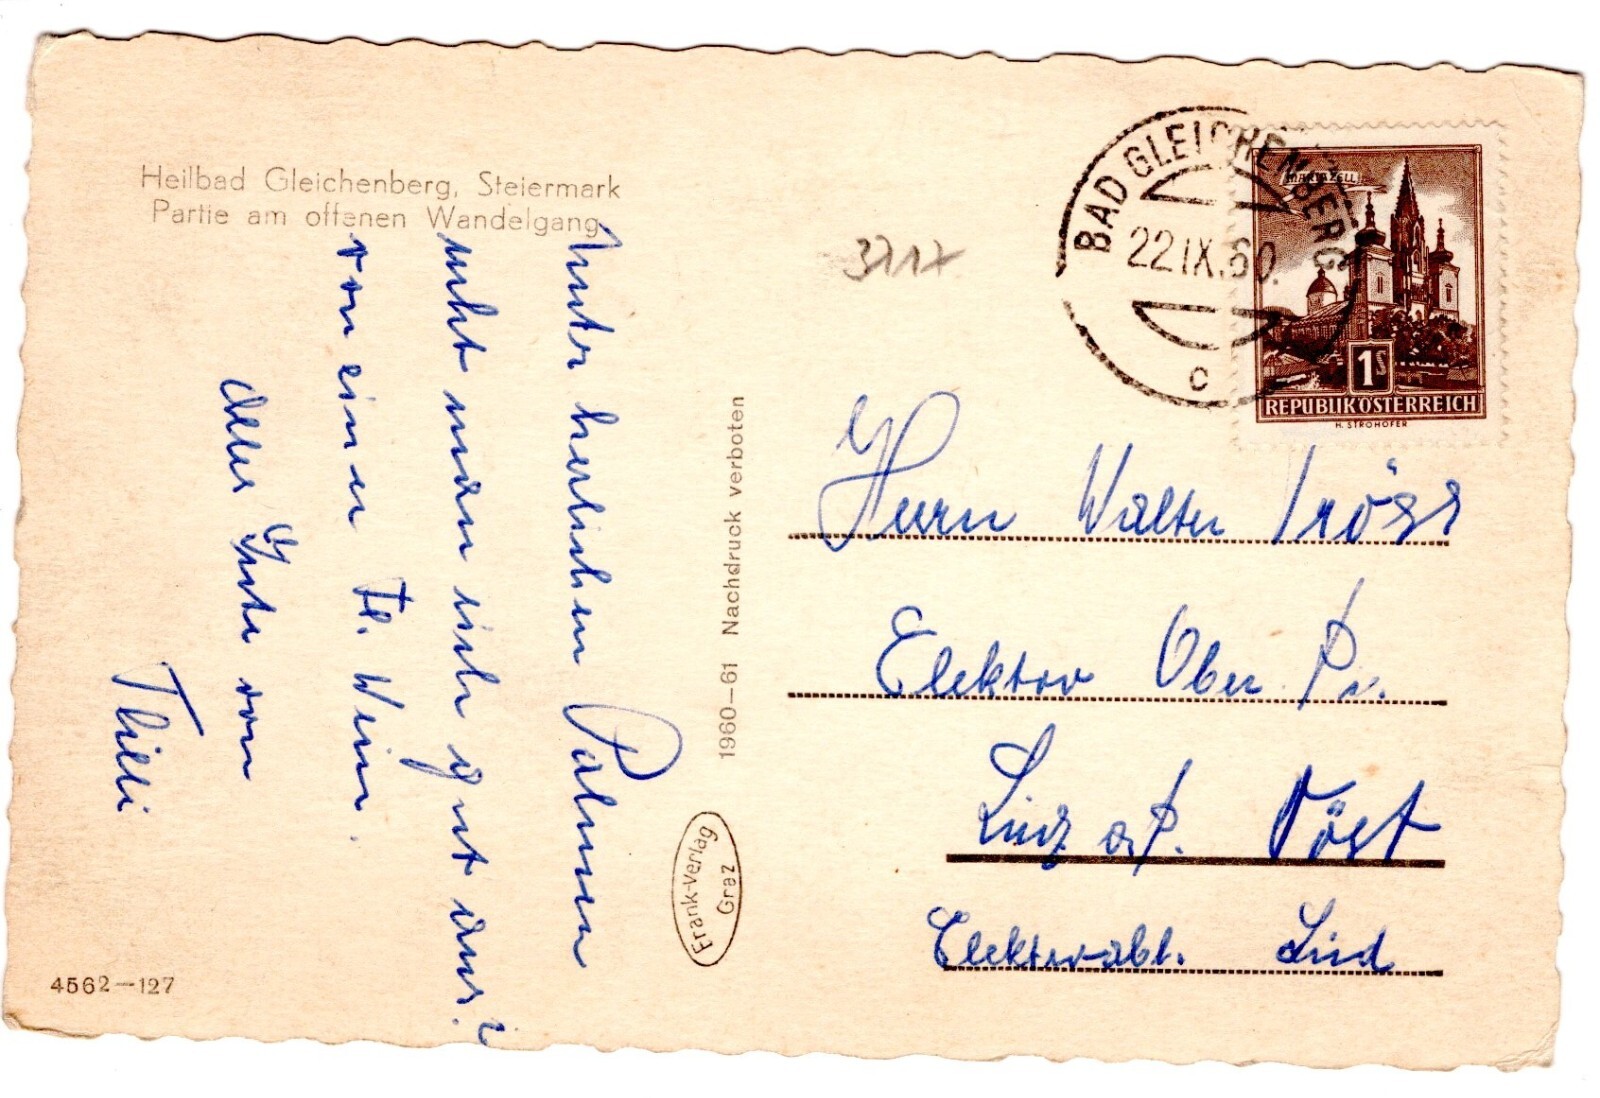 Heilbad Gleichenberg, Steiermark
Partie am offenen Wandelgang
Unter herlichen Palmen
ruht man sich gut aus.
von einer Fl. Wein.
alles Gute von
4562—127
1960—61 Nachdruck verboten
Frank-Verlag
Graz
3717
BAD GLEICHENBERG
22.IX.60.
c
MARIAZELL
1S
REPUBLIK ÖSTERREICH
H. STROHOFER
Herrn Walter
Elektro Ober
Linz a/D. Vöst
Elektroabt. Süd